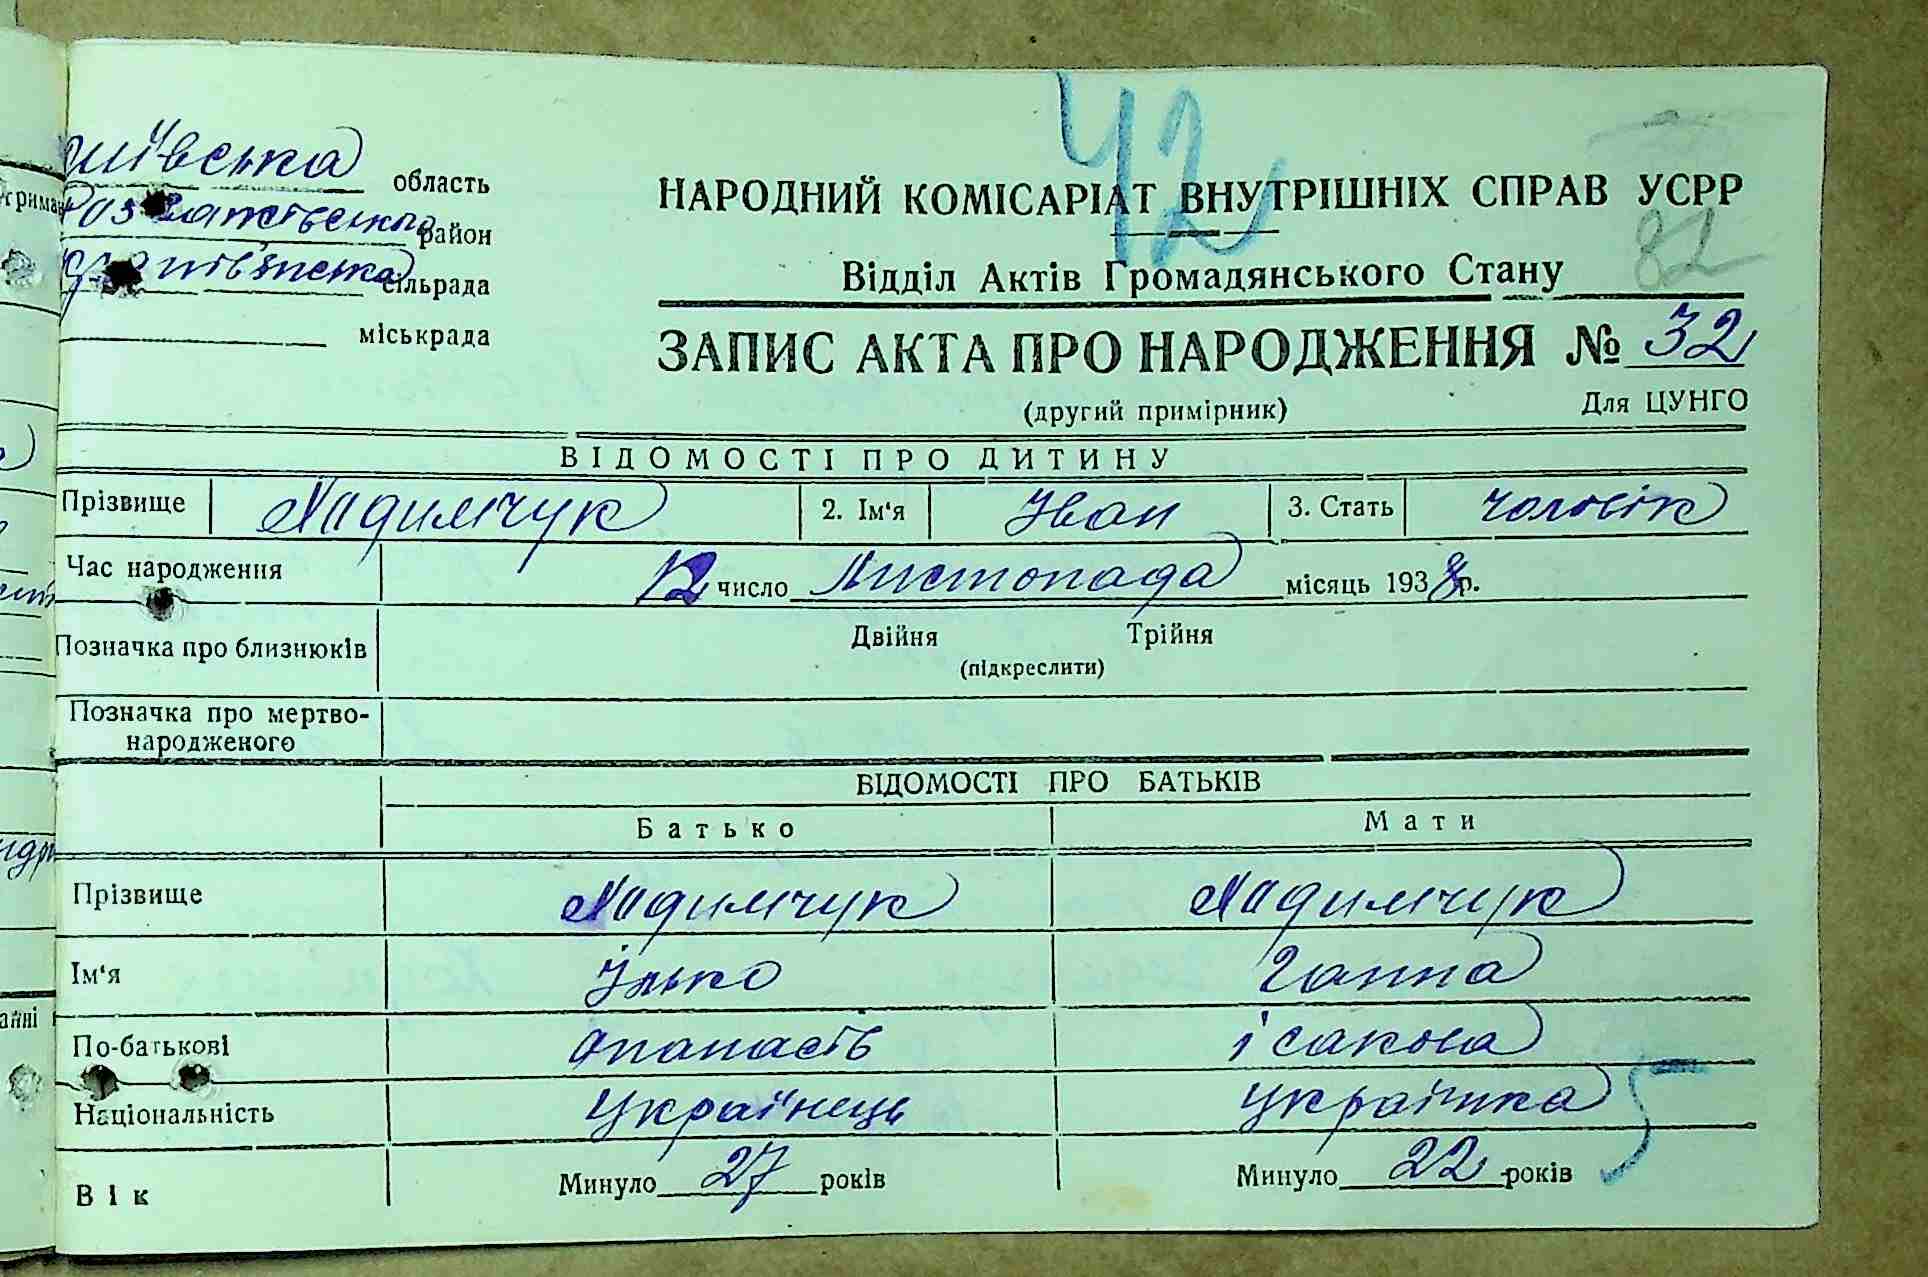 область
район
сільрада
міськрада
42
НАРОДНИЙ КОМІСАРІАТ ВНУТРІШНІХ СПРАВ УСРР
82
Відділ Актів Громадянського Стану
ЗАПИС АКТА ПРО НАРОДЖЕННЯ № 32
(другий примірник) Для ЦУНГО
ВІДОМОСТІ ПРО ДИТИНУ
Прізвище Надимчук 2. Ім'я Іван 3. Стать чоловік
Час народження 12 число Листопада місяць 1938 р.
Позначка про близнюків Двійня Трійня
(підкреслити)
Позначка про мертво-
народженого
ВІДОМОСТІ ПРО БАТЬКІВ
Батько Мати
Прізвище Надимчук Надимчук
Ім'я Ілько Ганна
По-батькові Опанасів ісакова
Національність Українець Українка
5
Вік Минуло 27 років Минуло 22 років